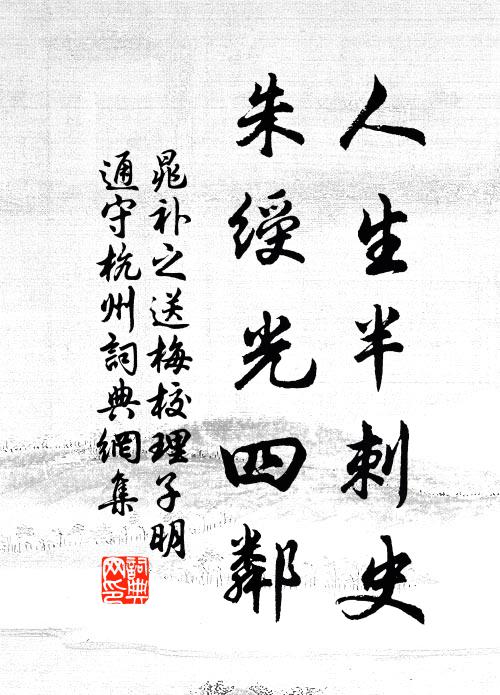 人生半刺史
朱綬光四鄰
晁补之送梅校理子明
通守杭州詞典網集
詞典网印